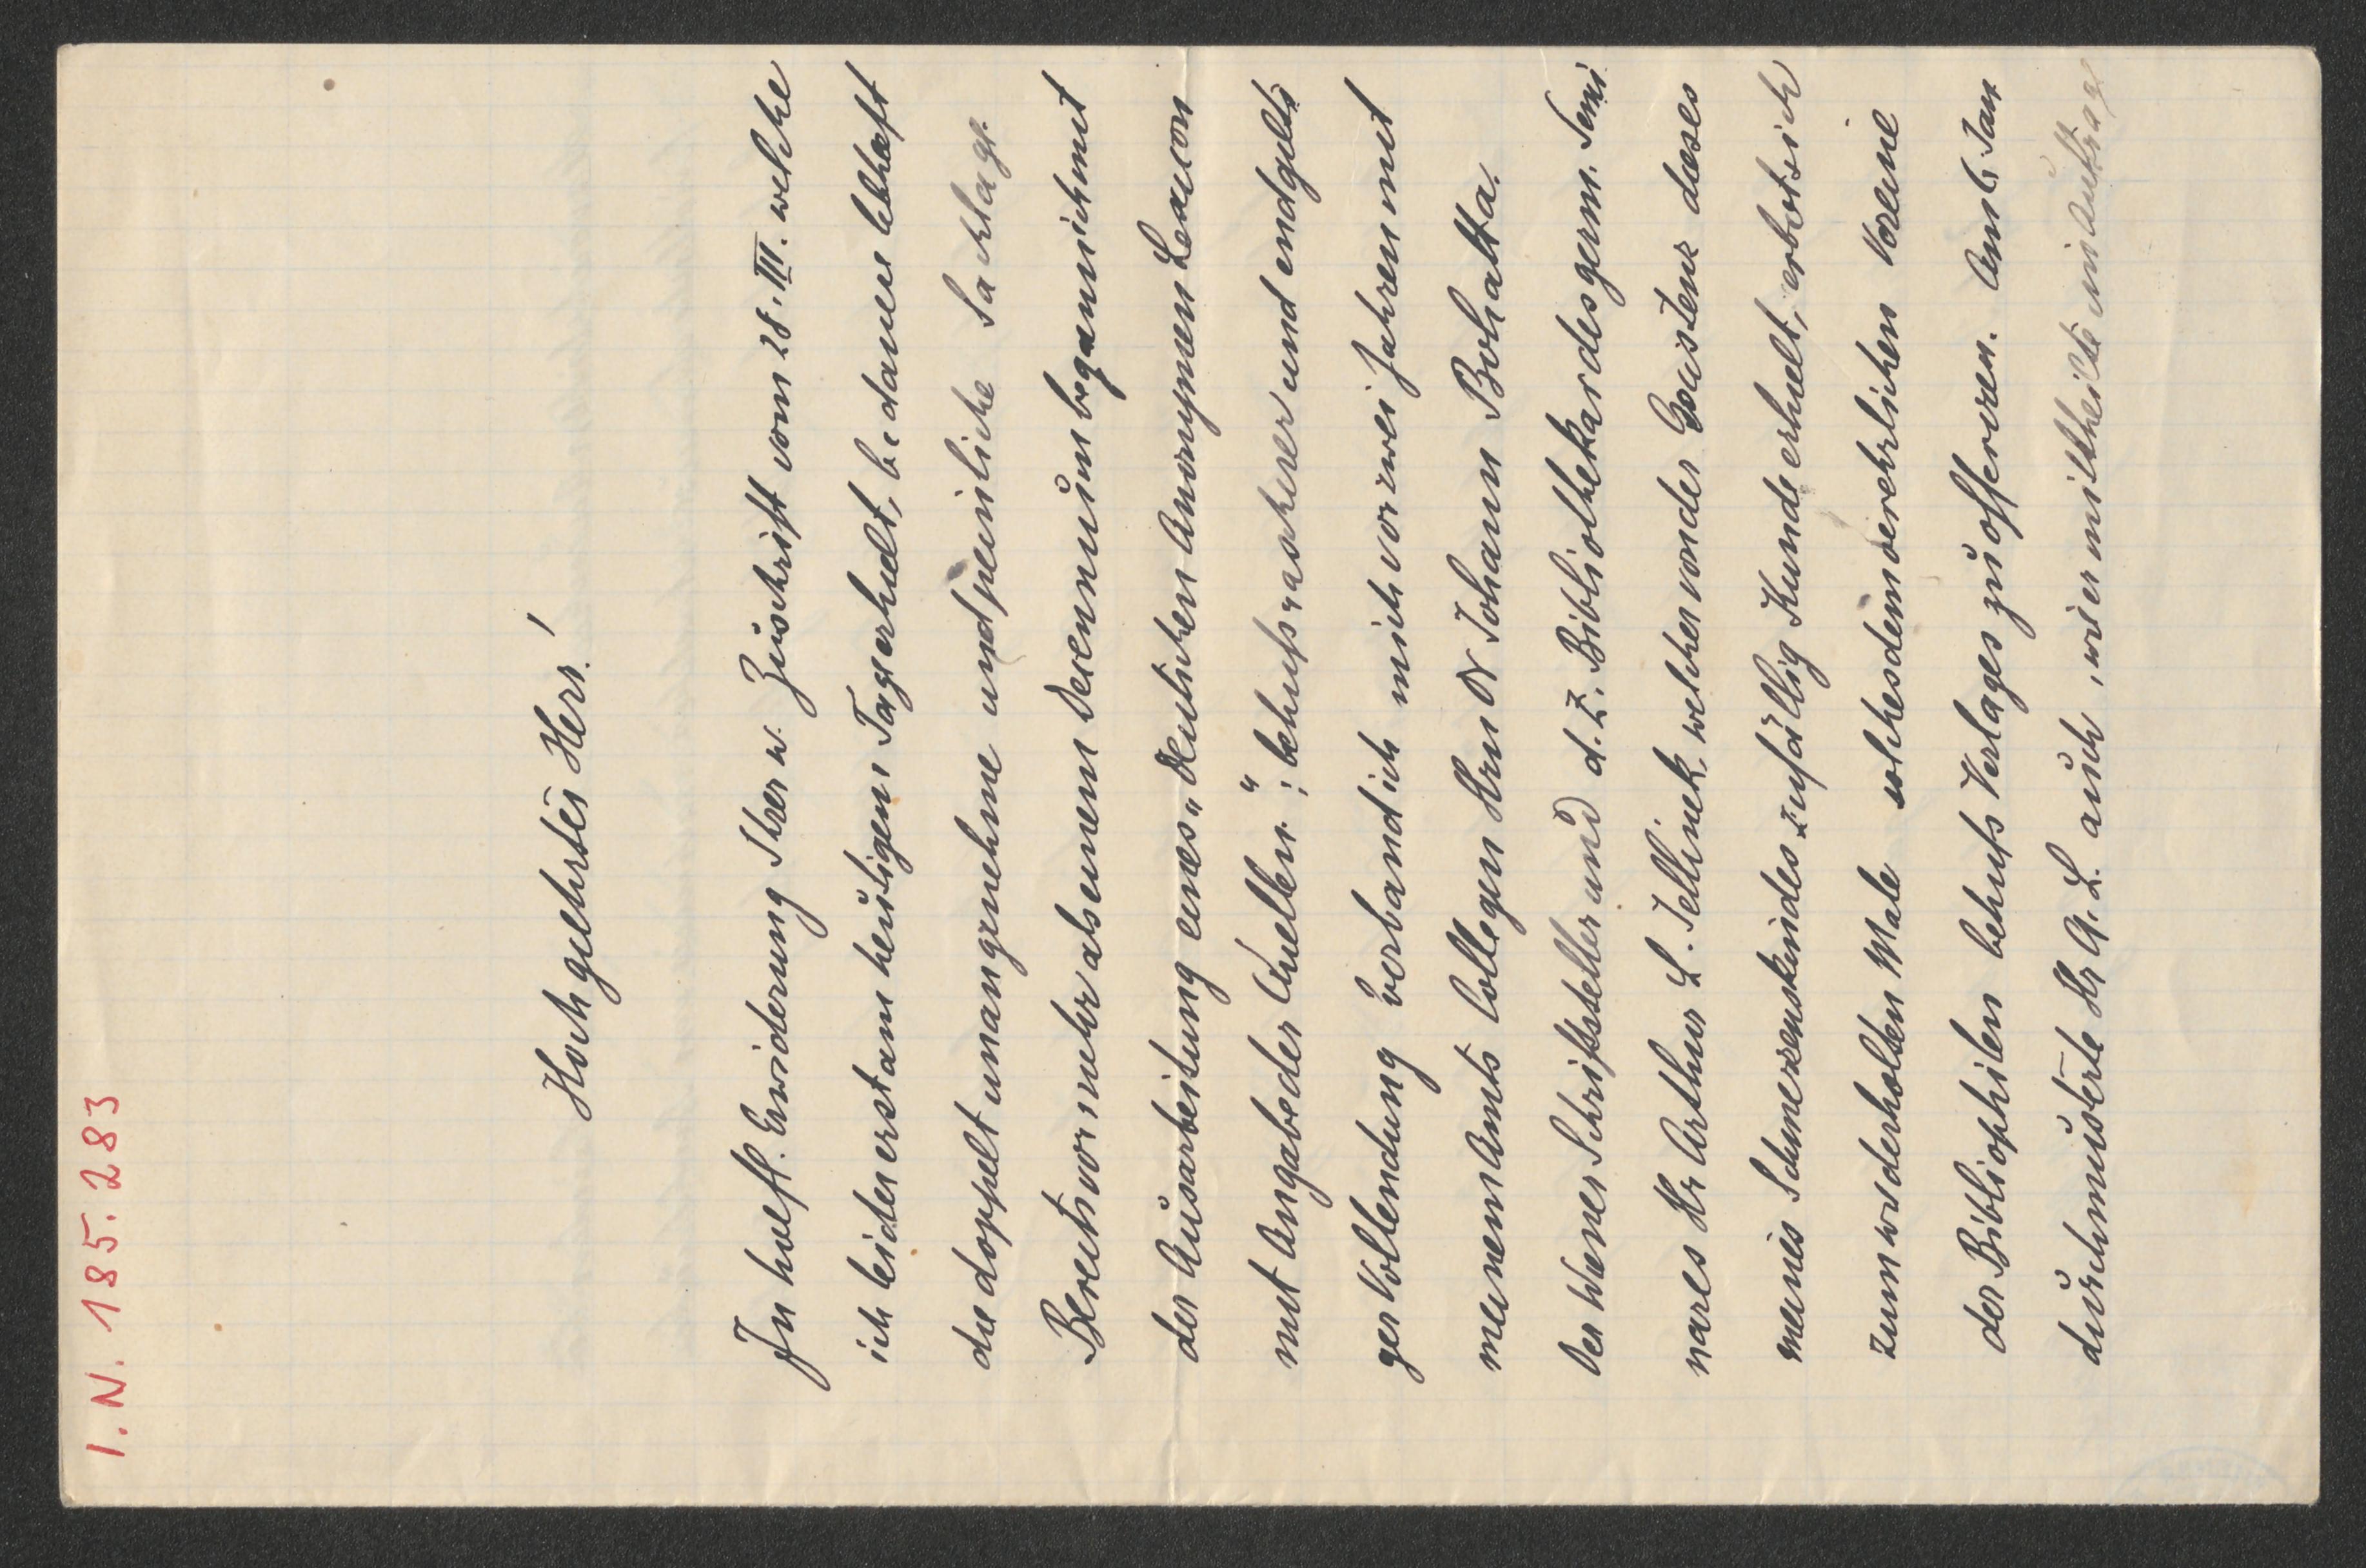 I.N. 185.283
Hochgeehrter Herr!
In höfl. Erwiderung Ihrer w. Zuschrift vom 28. III. welche
ich leider erst am heutigen Tage erhielt, bedaure lebhaft
die doppelt unangenehme und peinliche Sachlage.
Bereits vor mehr als einem Decennium begann ich mit
der Ausarbeitung eines „Deutschen Anonymen Lexicon
mit Angabe der Quellen"; behufs rascherer und endgülti
ger Vollendung verband ich mich vor zwei Jahren mit
meinem Amts Collegen Hrn Dr Johann Bohatta.
Der Wiener Schriftsteller und d. Z. Bibliothekar des germ. Semi
nares Hr Arthur L. Jellinek, welcher von der Existenz dieses
meines Schmerzenskindes zufällig Kunde erhielt, erbot sich
zum wiederholten Male solches dem verehrlichen Vereine
der Bibliophilen behufs Verlages zu offeriren. Am 6. Jan
durchmusterte Hr A. L. auch, wie mittheilte im Auftrage